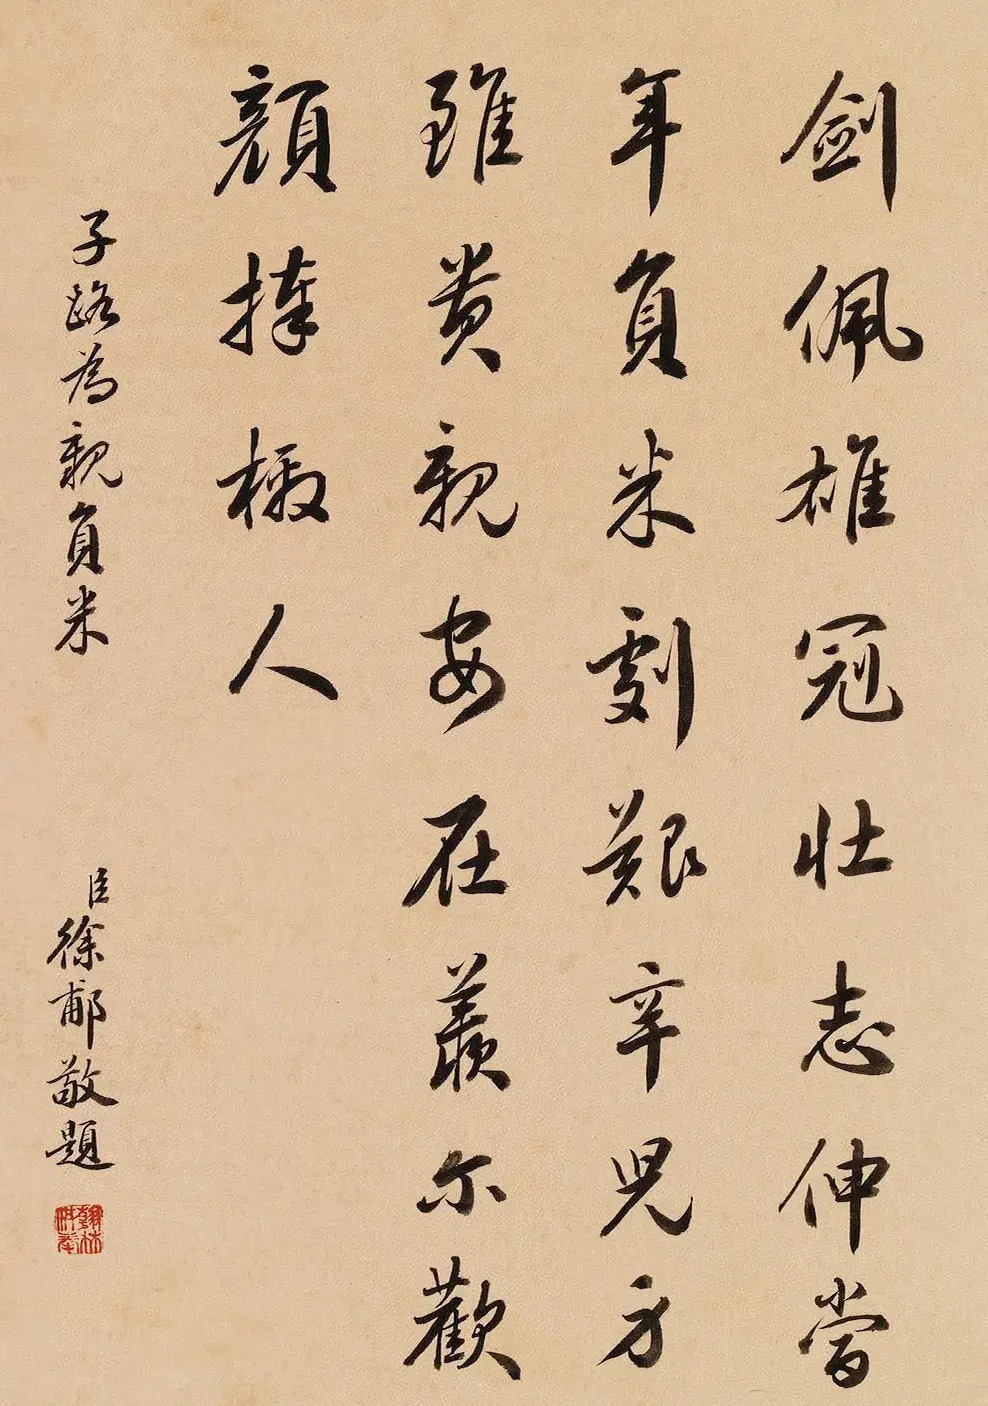 劍佩雄冠壯志伸當
年負米劇艱辛兒方
雖貴親安在羨爾歡
顏捧檄人
子路為親負米
臣徐郙敬題